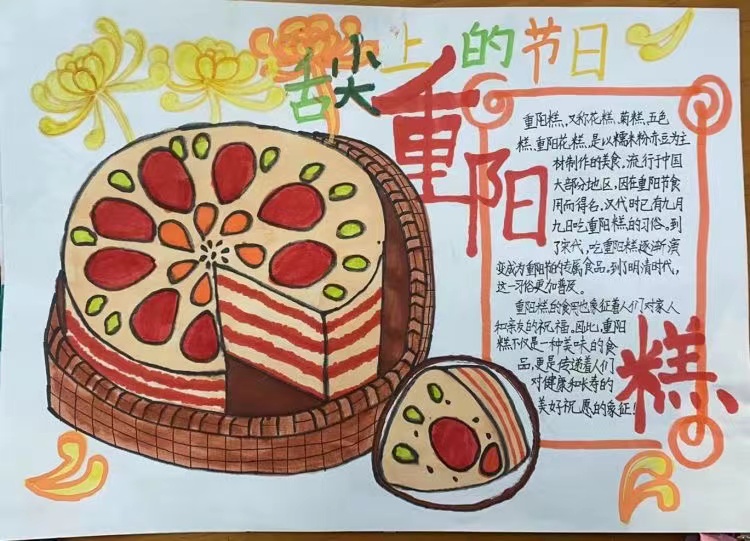 舌尖上的节日
重阳糕
重阳糕、又称花糕、菊糕、五色
糕、重阳花糕、是以糯米粉赤豆为主
材制作的美食、流行于中国
大部分地区、因在重阳节食
用而得名。汉代时已有九月
九日吃重阳糕的习俗。到
了宋代、吃重阳糕逐渐演
变成为重阳节的专属食品。到了明清时代，
这一习俗更加普及。
重阳糕的食用也象征着人们对家人
和亲友的祝福。因此、重阳
糕不仅是一种美味的食
品，更是传递着人们
对健康和长寿的
美好祝愿的象征！